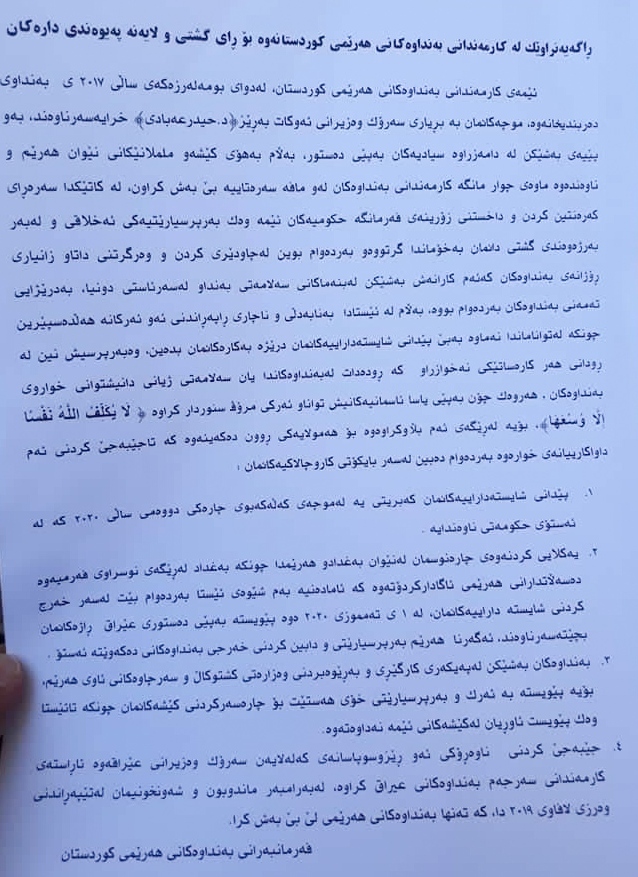 ڕاگەیەنراوێك لە کارمەندانی بەنداوەکانی هەرێمی کوردستانەوە بۆ ڕای گشتی و لایەنە پەیوەندی دارەکان
ئێمەی کارمەندانی بەنداوەکانی هەرێمی کوردستان، لەدوای بومەلەرزەکەی ساڵی ٢٠١٧ ی بەنداوی
دەربندیخانەوە، موچەکانمان بە بڕیاری سەرۆك وەزیرانی ئەوکات بەڕێز ﴿د.حیدرعەبادی﴾ خرایەسەرناوەند، بەو
پێیەی بەشێکن لە دامەزراوە سیادیەکان بەپێی دەستور، بەڵام بەهۆی کێشەو ململانێکانی نێوان هەرێم و
ناوەندەوە ماوەی چوار مانگە کارمەندانی بەنداوەکان لەو مافە سەرەتاییە بێ بەش کراون، لە کاتێکدا سەرەڕای
کەرەنتین کردن و داخستنی زۆرینەی فەرمانگە حکومیەکان ئێمە وەك بەرپرسیارێتیەکی ئەخلاقی و لەبەر
بەرژەوەندی گشتی دانمان بەخۆماندا گرتووەو بەردەوام بوین لەچاودێری کردن و وەرگرتنی داتاو زانیاری
ڕۆژانەی بەنداوەکان کەئەم کارانەش بەشێکن لەبنەماکانی سەلامەتی بەنداو لەسەرئاستی دونیا، بەدرێژایی
تەمەنی بەنداوەکان بەردەوام بووە، بەڵام لە ئێستادا بەنابەدڵی و ناچاری ڕاپەڕاندنی ئەو ئەرکانە هەڵدەسپێرین
چونکە لەتواناماندا نەماوە بەبێ پێدانی شایستەداراییەکانمان درێژە بەکارەکانمان بدەین، وەبەرپرسیش نین لە
ڕودانی هەر کارەساتێکی نەخوازراو کە ڕودەدات لەبەنداوەکاندا یان سەلامەتی ژیانی دانیشتوانی خواروی
بەنداوەکان . هەروەك چۆن بەپێی یاسا ئاسمانیەکانیش تواناو ئەرکی مرۆڤ سنوردار کراوە ﴿ لَا يُكَلِّفُ اللَّهُ نَفْسًا
إِلَّا وُسْعَهَا﴾، بۆیە لەڕێگەی ئەم بڵاوکراوەوە بۆ هەمولایەکی ڕوون دەکەینەوە کە تاجێبەجێ کردنی ئەم
داواکارییانەی خوارەوە بەردەوام دەبین لەسەر بایکۆتی کاروچالاکیەکانمان :
١. پێدانی شایستەداراییەکانمان کەبریتی یە لەموچەی کەڵەکەبوی چارەکی دووەمی ساڵی ٢٠٢٠ کە لە
ئەستۆی حکومەتی ناوەندایە .
٢. یەکلایی کردنەوەی چارەنوسمان لەنێوان بەغدادو هەرێمدا چونکە بەغداد لەڕێگەی نوسراوی فەرمیەوە
دەسەڵاتدارانی هەرێمی ئاگادارکردۆتەوە کە ئامادەنیە بەم شێوەی ئێستا بەردەوام بێت لەسەر خەرج
کردنی شایستە داراییەکانمان، لە ١ ی تەمموزی ٢٠٢٠ ەوە پێویستە بەپێی دەستوری عێراق ڕاژەکانمان
بچێتەسەرناوەند، ئەگەرنا هەرێم بەرپرسیارێتی و دابین کردنی خەرجی بەنداوەکانی دەکەوێتە ئەستۆ .
٣. بەنداوەکان بەشێکن لەپەیکەری کارگێڕی و بەڕێوەبردنی وەزارەتی کشتوکاڵ و سەرچاوەکانی ئاوی هەرێم،
بۆیە پێویستە بە ئەرك و بەرپرسیارێتی خۆی هەستێت بۆ چارەسەرکردنی کێشەکانمان چونکە تائێستا
وەك پێویست ئاوڕیان لەکێشەکانی ئێمە نەداوەتەوە.
٤. جێبەجێ کردنی ناوەڕۆکی ئەو ڕێزوسوپاسانەی کەلەلایەن سەرۆك وەزیرانی عێراقەوە ئاراستەی
کارمەندانی سەرجەم بەنداوەکانی عیراق کراوە، لەبەرامبەر ماندوبون و شەونخونیمان لەتێپەڕاندنی
وەرزی لافاوی ٢٠١٩ دا، کە تەنها بەنداوەکانی هەرێمی لێ بێ بەش کرا.
فەرمانبەرانی بەنداوەکانی هەرێمی کوردستان